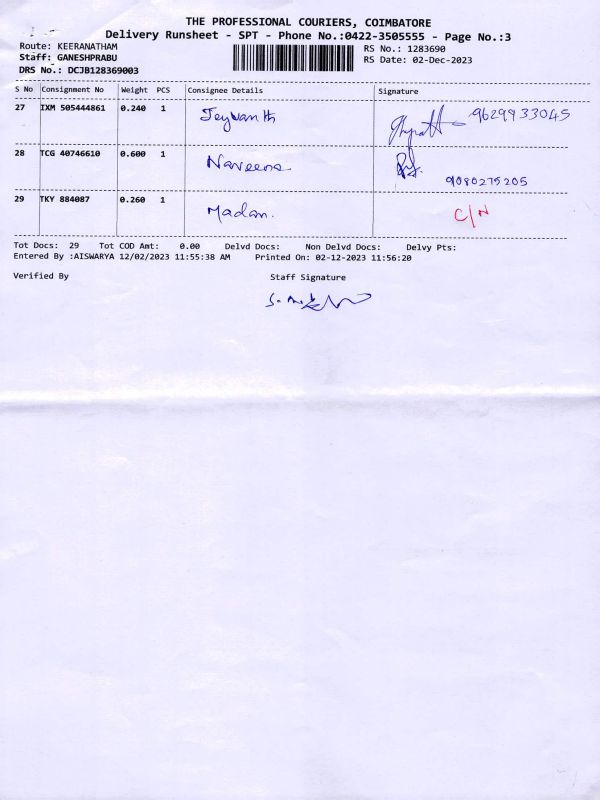 THE PROFESSIONAL COURIERS, COIMBATORE
Delivery Runsheet - SPT - Phone No.:0422-3505555 - Page No.:3
Route: KEERANATHAM RS No.: 1283690
Staff: GANESHPRABU RS Date: 02-Dec-2023
DRS No.: DCJB128369003
S No Consignment No Weight PCS Consignee Details Signature
27 IXM 505444861 0.240 1 Jeywanth 9629933045
28 TCG 40746610 0.600 1 Naveena 9080275205
29 TKY 884087 0.260 1 Madan. C/N
Tot Docs: 29 Tot COD Amt: 0.00 Delvd Docs: Non Delvd Docs: Delvy Pts:
Entered By :AISWARYA 12/02/2023 11:55:38 AM Printed On: 02-12-2023 11:56:20
Verified By Staff Signature